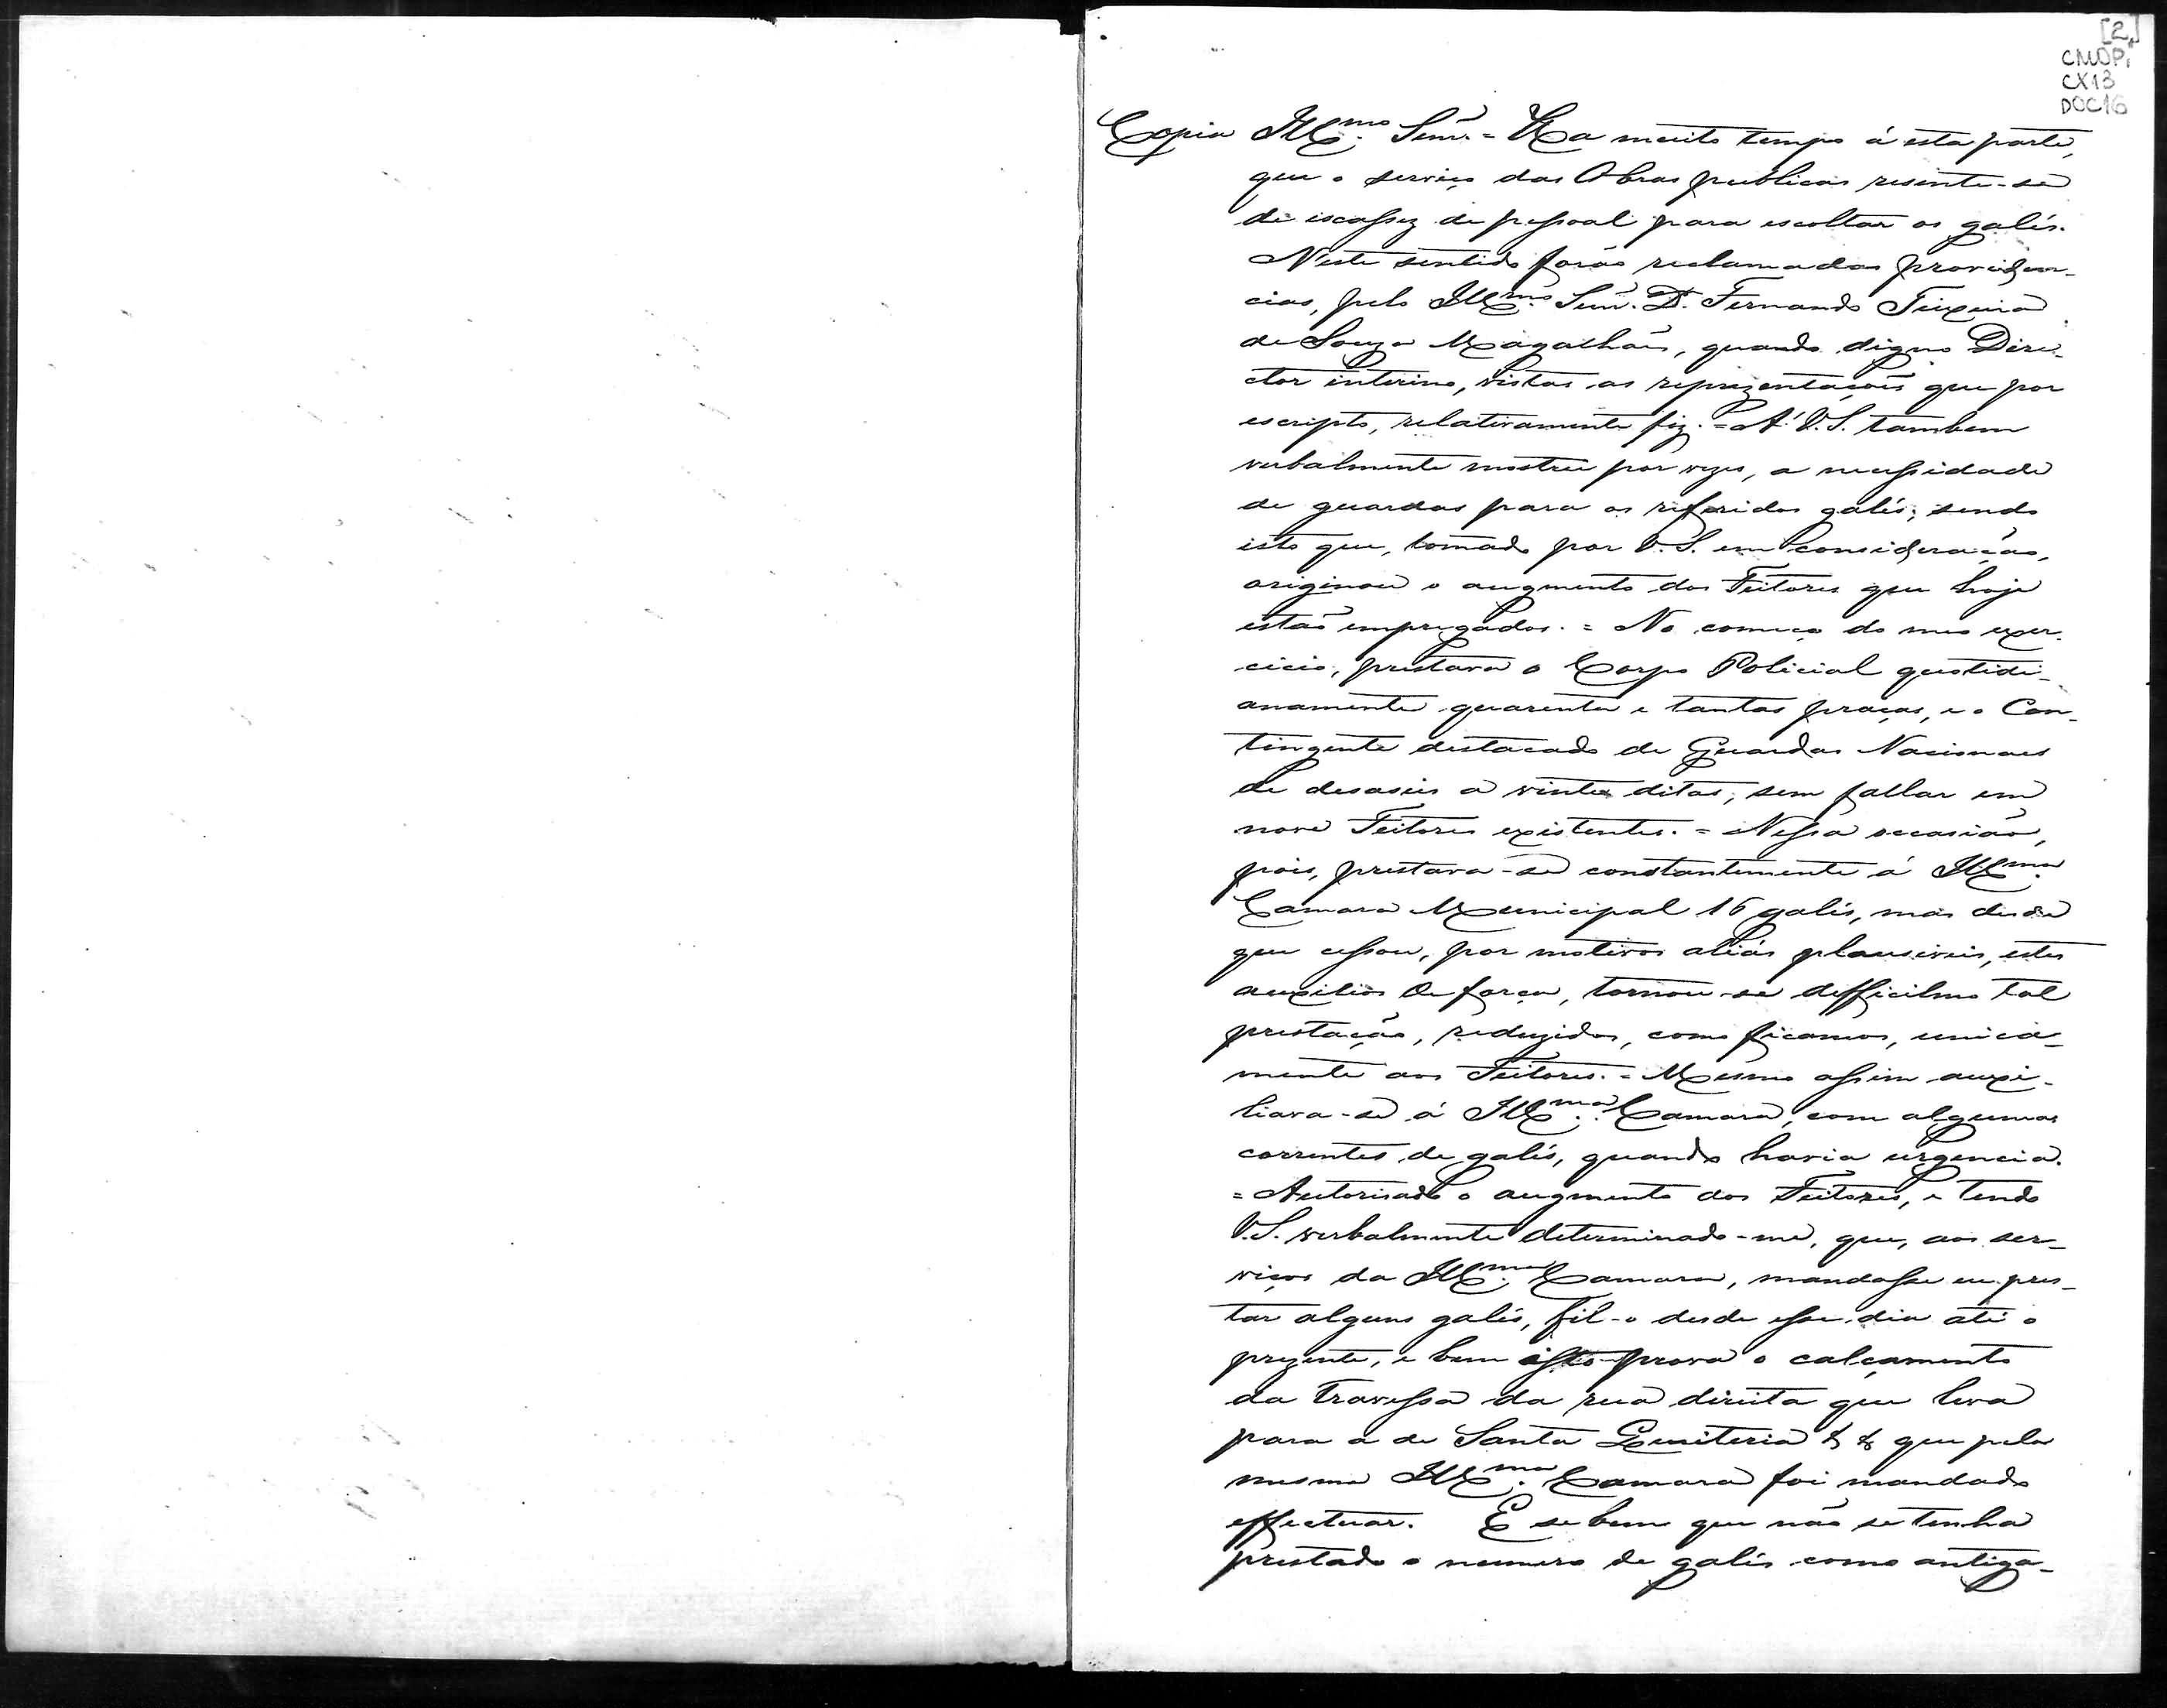 [2]
CMOP,
CX13
DOC16
Copia Illmo. Senr. = Ha muito tempo á esta parte,
que o serviço das Obras publicas resente-se
de escassez de pessoal para escoltar os galés.
N'este sentido forão reclamadas providen-
cias, pelo Illmo. Senr. Dr. Fernando Teixeira
de Souza Magalhães, quando digno Dire-
ctor interino, vistas as reprezentações que por
escripto, relativamente fiz. = A' V.S. tambem
verbalmente mostrei por vezes, a necessidade
de guardas para os referidos galés; sendo
isto que, tomado por V.S. em consideração,
originou o augmento dos Feitores que hoje
estão empregados. = No começo do meo exer-
cicio, prestava o Corpo Policial quotidi-
anamente quarenta e tantas praças, e o Con-
tingente destacado de Guardas Nacionaes
de desaseis a vinte ditas, sem fallar em
nove Feitores existentes. = Nessa occasião,
pois, prestava-se constantemente á Illma.
Camara Municipal 16 galés, mas desde
que cessou, por motivos aliás plausiveis, estes
auxilios de força, tornou-se defficilmo tal
prestação, reduzidos, como ficamos, unica-
mente aos Feitores. = Mesmo assim auxi-
liava-se á Illma. Camara, com algumas
correntes de galés, quando havia urgencia.
= Autorisado o augmento dos Feitores, e tendo
V.S. verbalmente determinado-me, que, aos ser-
viços da Illma. Camara, mandasse eu pres-
tar alguns galés, fil-o desde esse dia até o
prezente, e bem isto prova o calçamento
da travessa da rua direita que leva
para a de Santa Quiteria & & que pela
mesma Illma. Camara foi mandado
effectuar. E se bem que não se tenha
prestado o numero de galés como antiga-